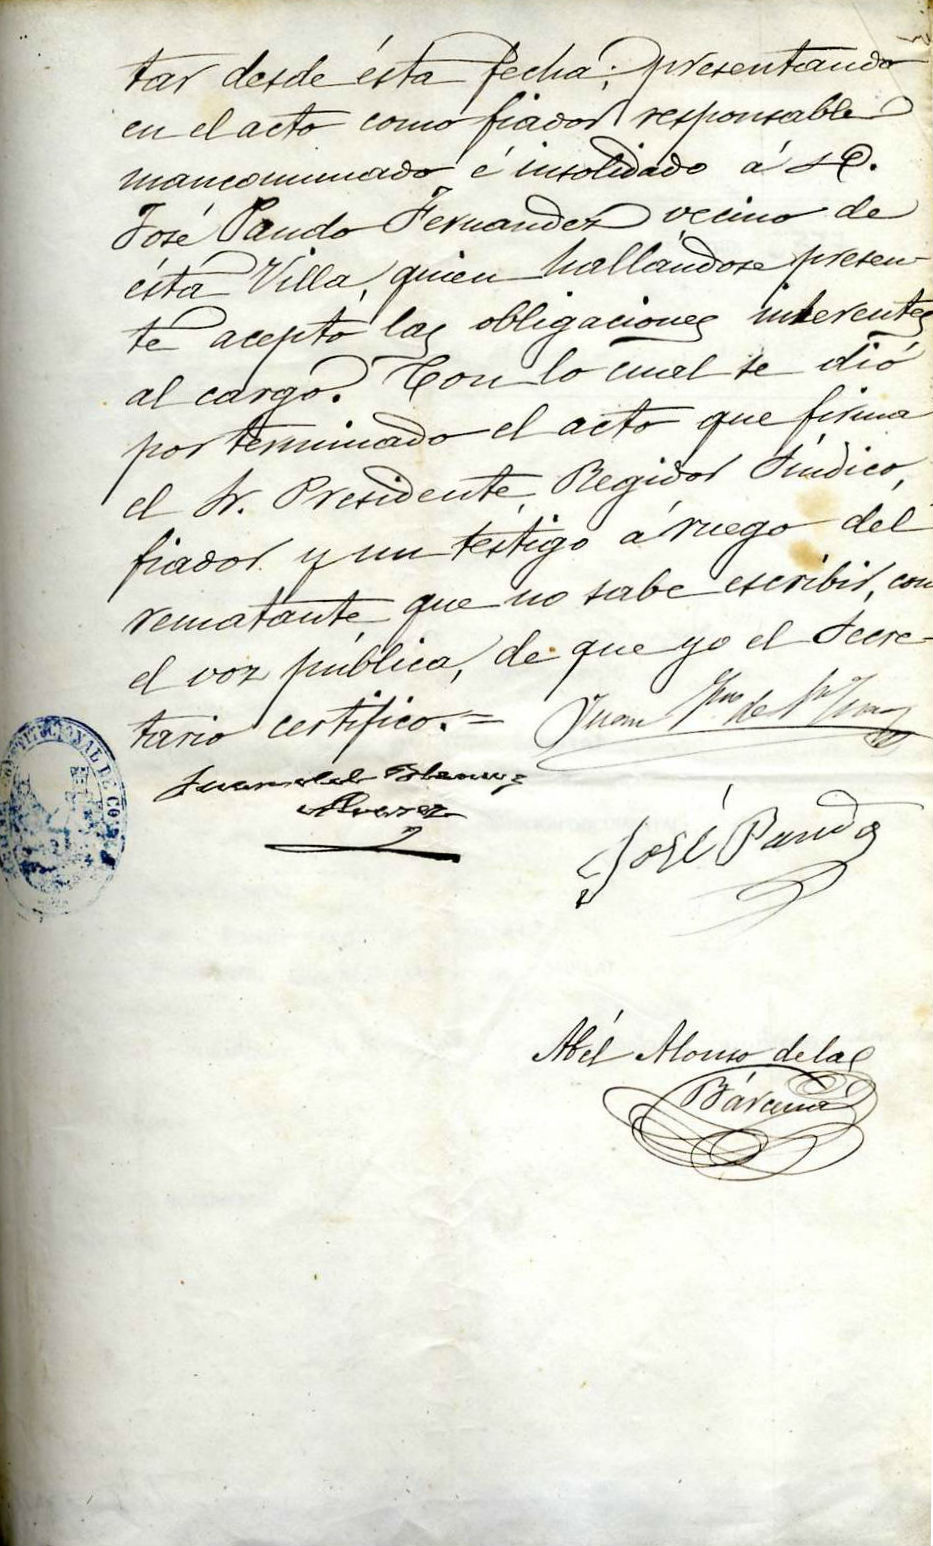 tar desde ésta fecha; presentando
en el acto como fiador responsable
mancomunado é insolidado á D.
José Pando Fernandez vecino de
ésta Villa, quien hallándose presen-
te aceptó las obligaciones inherentes
al cargo. Con lo cual se dió
por terminado el acto que firma
el Sr. Presidente, Regidor Síndico,
fiador y un testigo á ruego del
rematante que no sabe escribir, con
el voz pública, de que yo el Secre-
tario certifico.=
Juan
Juan
Alvarez
José Pando
Abél Alonso de la
Bárcena